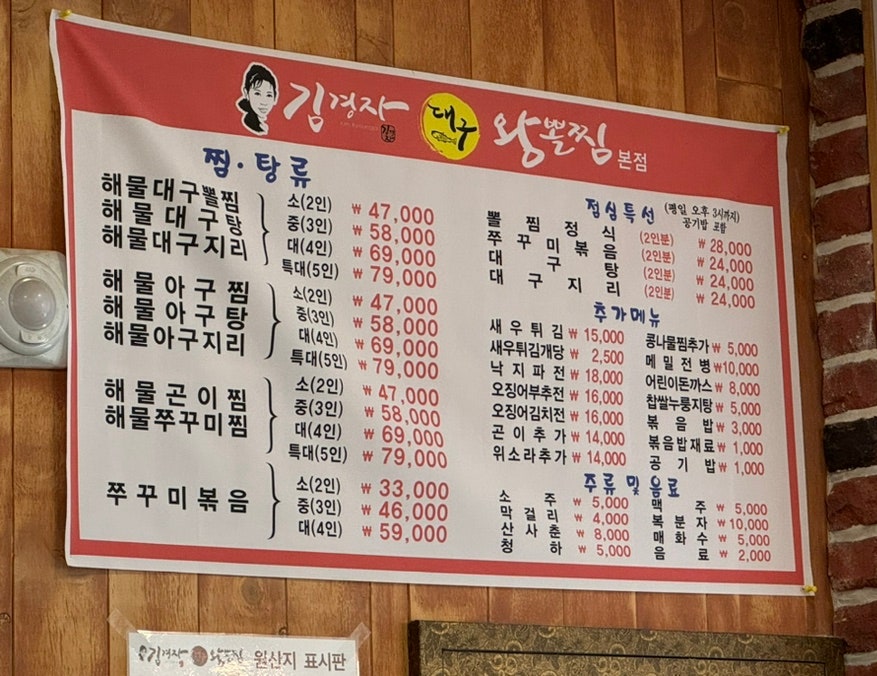 김경자 대구 왕뽈찜 본점
찜·탕류
해물대구뽈찜
해물대구탕
해물대구지리
소(2인) ₩ 47,000
중(3인) ₩ 58,000
대(4인) ₩ 69,000
특대(5인) ₩ 79,000
해물아구찜
해물아구탕
해물아구지리
소(2인) ₩ 47,000
중(3인) ₩ 58,000
대(4인) ₩ 69,000
특대(5인) ₩ 79,000
해물곤이찜
해물쭈꾸미찜
소(2인) ₩ 47,000
중(3인) ₩ 58,000
대(4인) ₩ 69,000
특대(5인) ₩ 79,000
쭈꾸미볶음
소(2인) ₩ 33,000
중(3인) ₩ 46,000
대(4인) ₩ 59,000
점심특선 (평일 오후 3시까지)
공기밥 포함
뽈찜정식 (2인분) ₩ 28,000
쭈꾸미볶음 (2인분) ₩ 24,000
대구탕 (2인분) ₩ 24,000
대구지리 (2인분) ₩ 24,000
추가메뉴
새우튀김 ₩ 15,000
새우튀김개당 ₩ 2,500
낙지파전 ₩ 18,000
오징어부추전 ₩ 16,000
오징어김치전 ₩ 16,000
곤이추가 ₩ 14,000
위소라추가 ₩ 14,000
콩나물찜추가 ₩ 5,000
메밀전병 ₩10,000
어린이돈까스 ₩ 8,000
찹쌀누룽지탕 ₩ 5,000
볶음밥 ₩ 3,000
볶음밥재료 ₩ 1,000
공기밥 ₩ 1,000
주류 및 음료
소주 ₩ 5,000
막걸리 ₩ 4,000
산사춘 ₩ 8,000
청하 ₩ 5,000
맥주 ₩ 5,000
복분자 ₩10,000
매화수 ₩ 5,000
음료 ₩ 2,000
김경자 대구 왕뽈찜 원산지 표시판